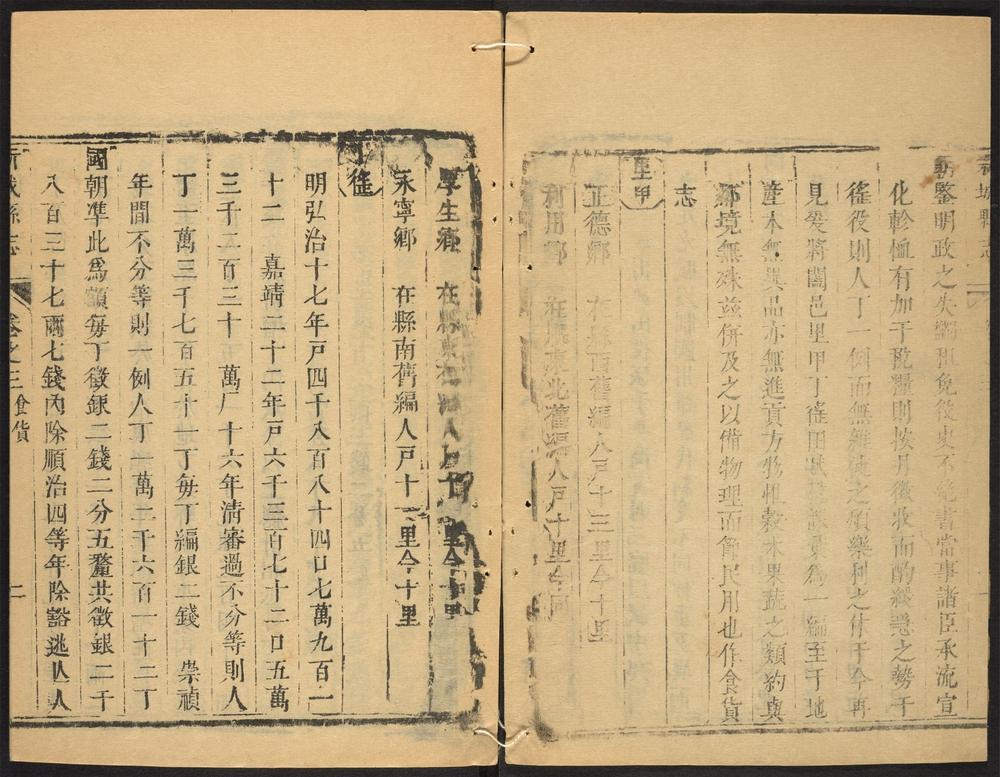 新城縣志
朝鑒明政之失蠲租免役史不絕書當事諸臣承流宣
化軫恤有加于稅糧則按月徵收而酌緩急之勢于
徭役則人丁一例而無雜派之煩樂利之休于今再
見爰將闔邑里甲丁徭田賦為一編至于地
產本無異品亦無進貢方物惟穀木果蔬之類約與
鄰境無殊並併及之以備物理而節民用也作食貨
志
里甲
正德鄉 在縣西舊編人戶十三里今十里
利用鄉 在縣東北舊編人戶十里今同
厚生鄉 在縣東 人戶十 里今十里
永寧鄉 在縣南舊編人戶十一里今十里
丁徭
明弘治十七年戸四千八百八十四口七萬九百一
十二 嘉靖二十二年戸六千三百七十二口五萬
三千二百三十五萬厂十六年清審過不分等則人
丁一萬三千七百五十一丁每丁編銀二錢 崇禎
年間不分等則一例人丁一萬二千六百一十二丁
國朝準此為額每丁徵銀二錢二分五釐共徵銀二千
八百三十七兩七錢內除順治四等年除豁逃亾人
新城縣志 卷之三食貨 二